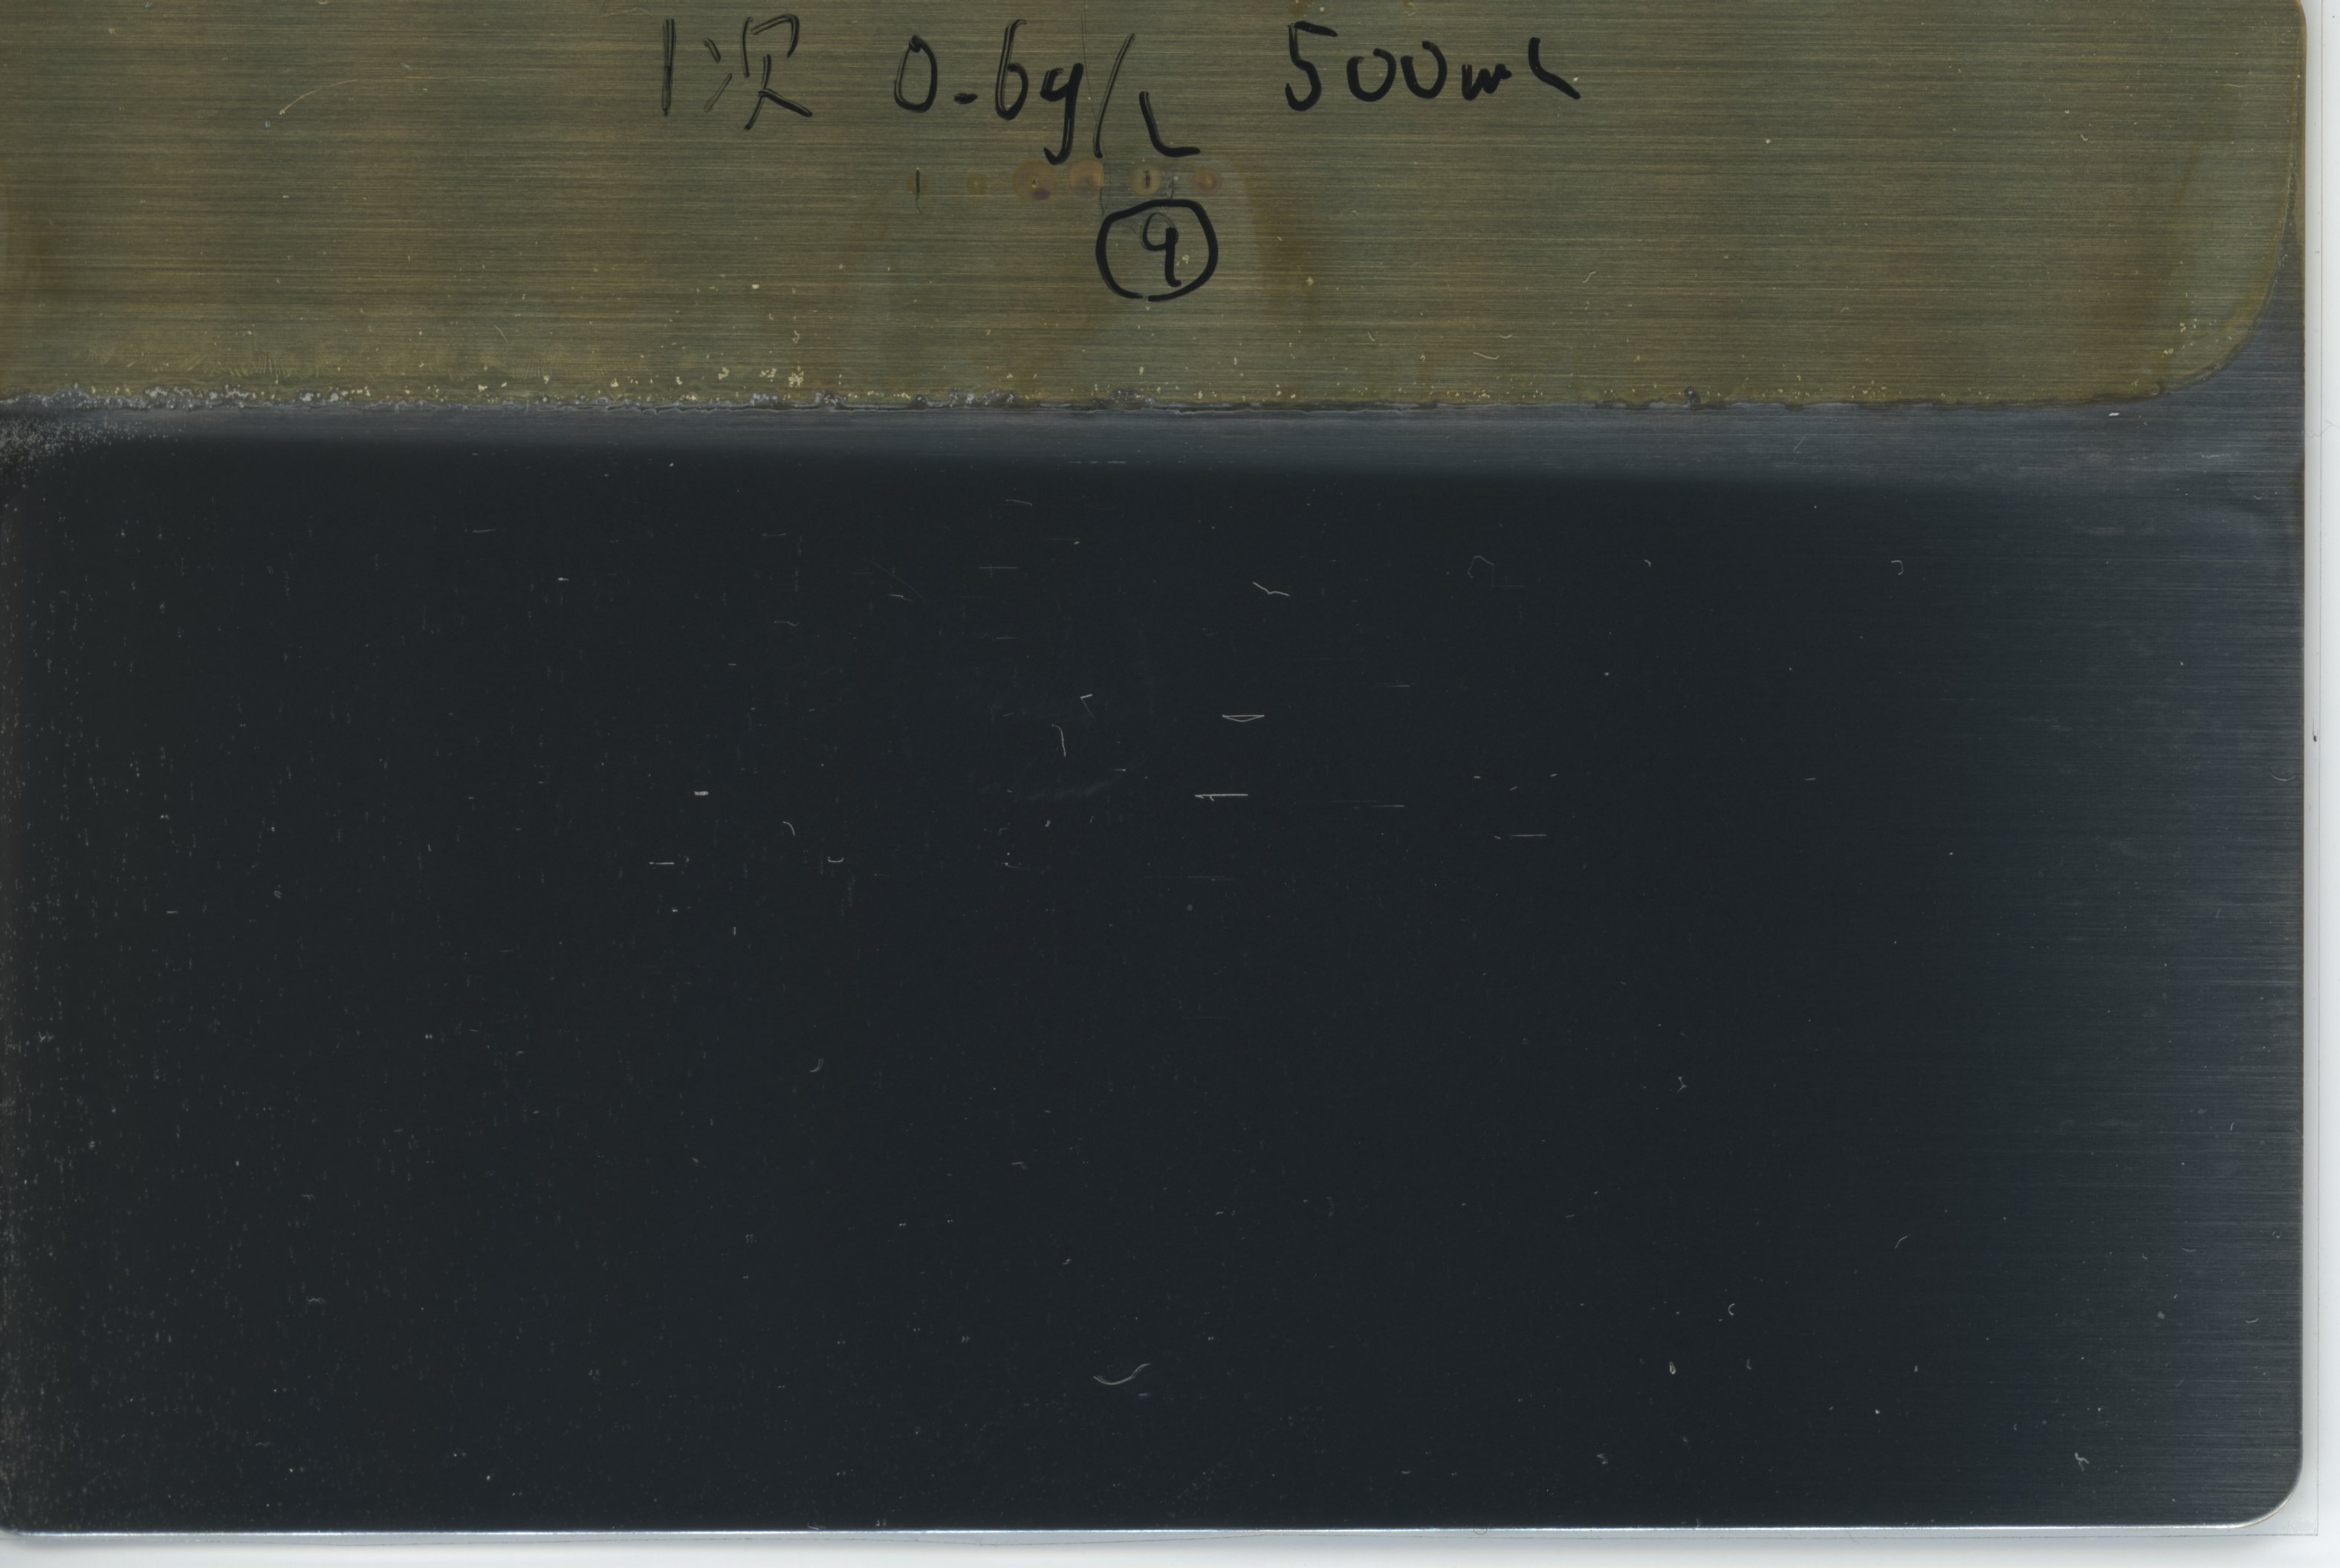 1次 0.6g/L 500mL
⑨